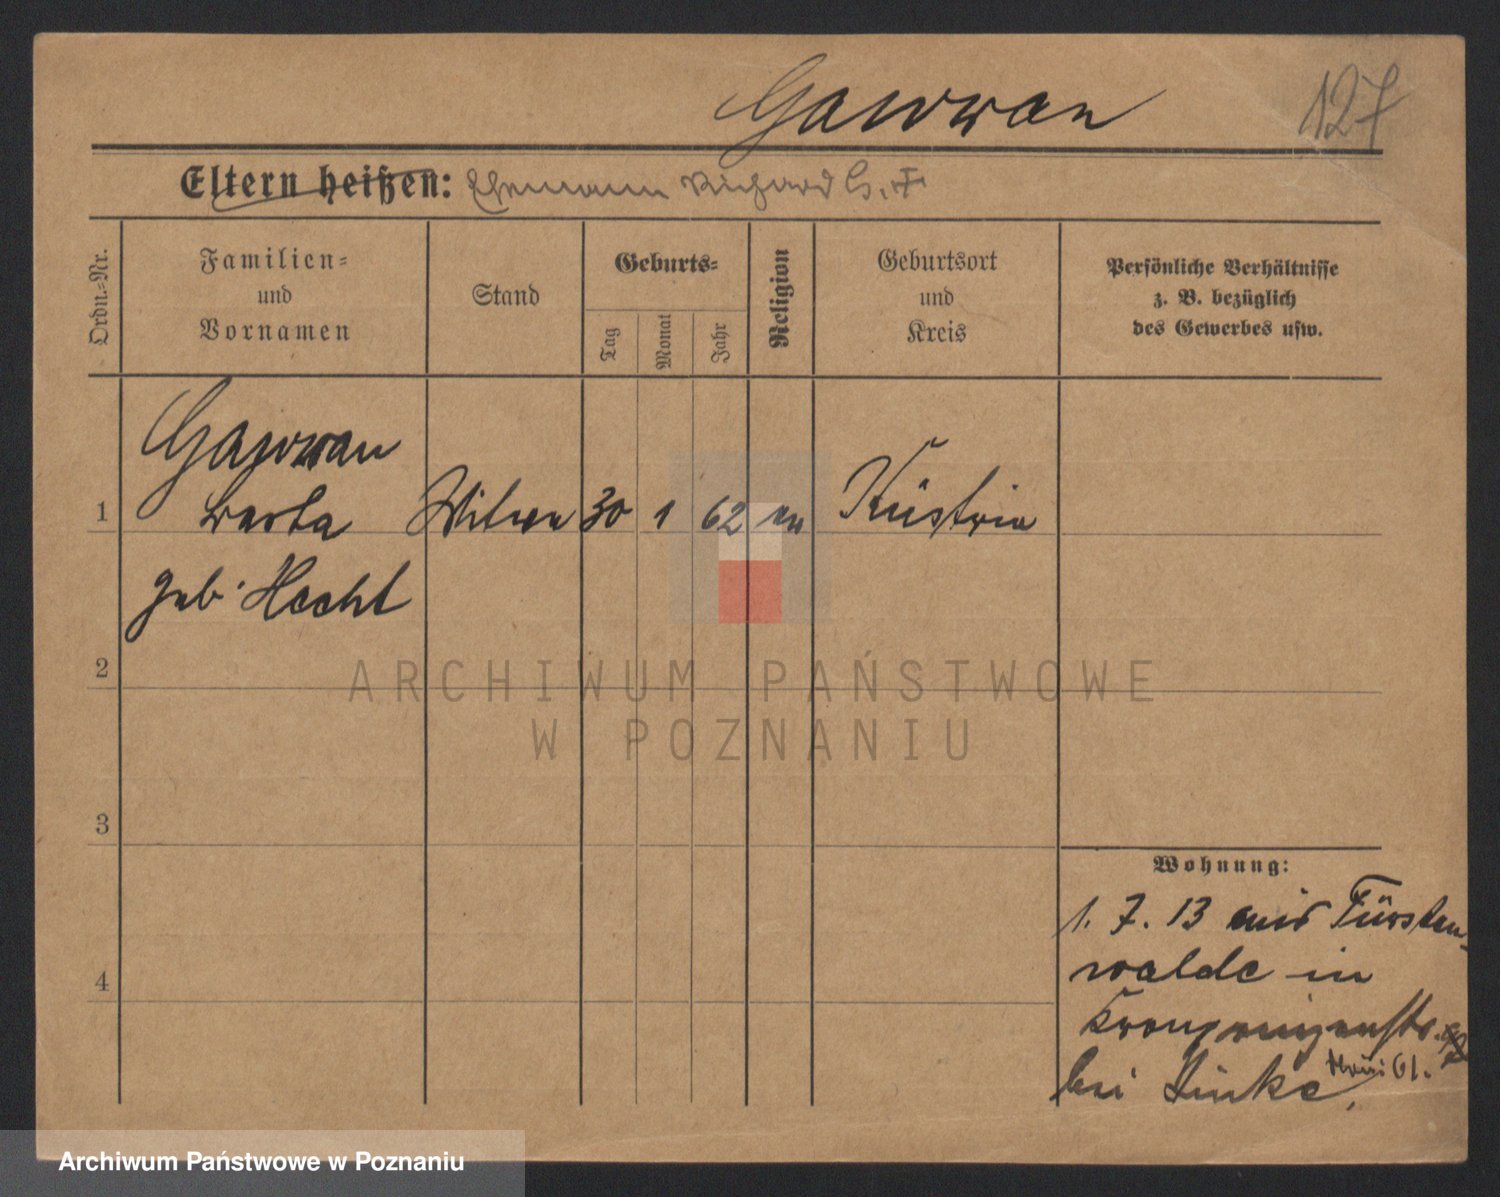 Gawron
127
Eltern heißen: Ehemann Richard G. †
Ordn.-Nr.
Familien-
und
Vornamen
Stand
Geburts-
Tag
Monat
Jahr
Religion
Geburtsort
und
Kreis
Persönliche Verhältnisse
z. B. bezüglich
des Gewerbes usw.
Gawron
1 Witwe 30 1 62 ev Küstrin
geb. Hecht
2
3
4
ARCHIWUM PAŃSTWOWE
W POZNANIU
Wohnung:
1. 7. 13 aus Fürsten-
walde in
Kronprinzenstr.
neu: 61.
bei Linke.
Archiwum Państwowe w Poznaniu